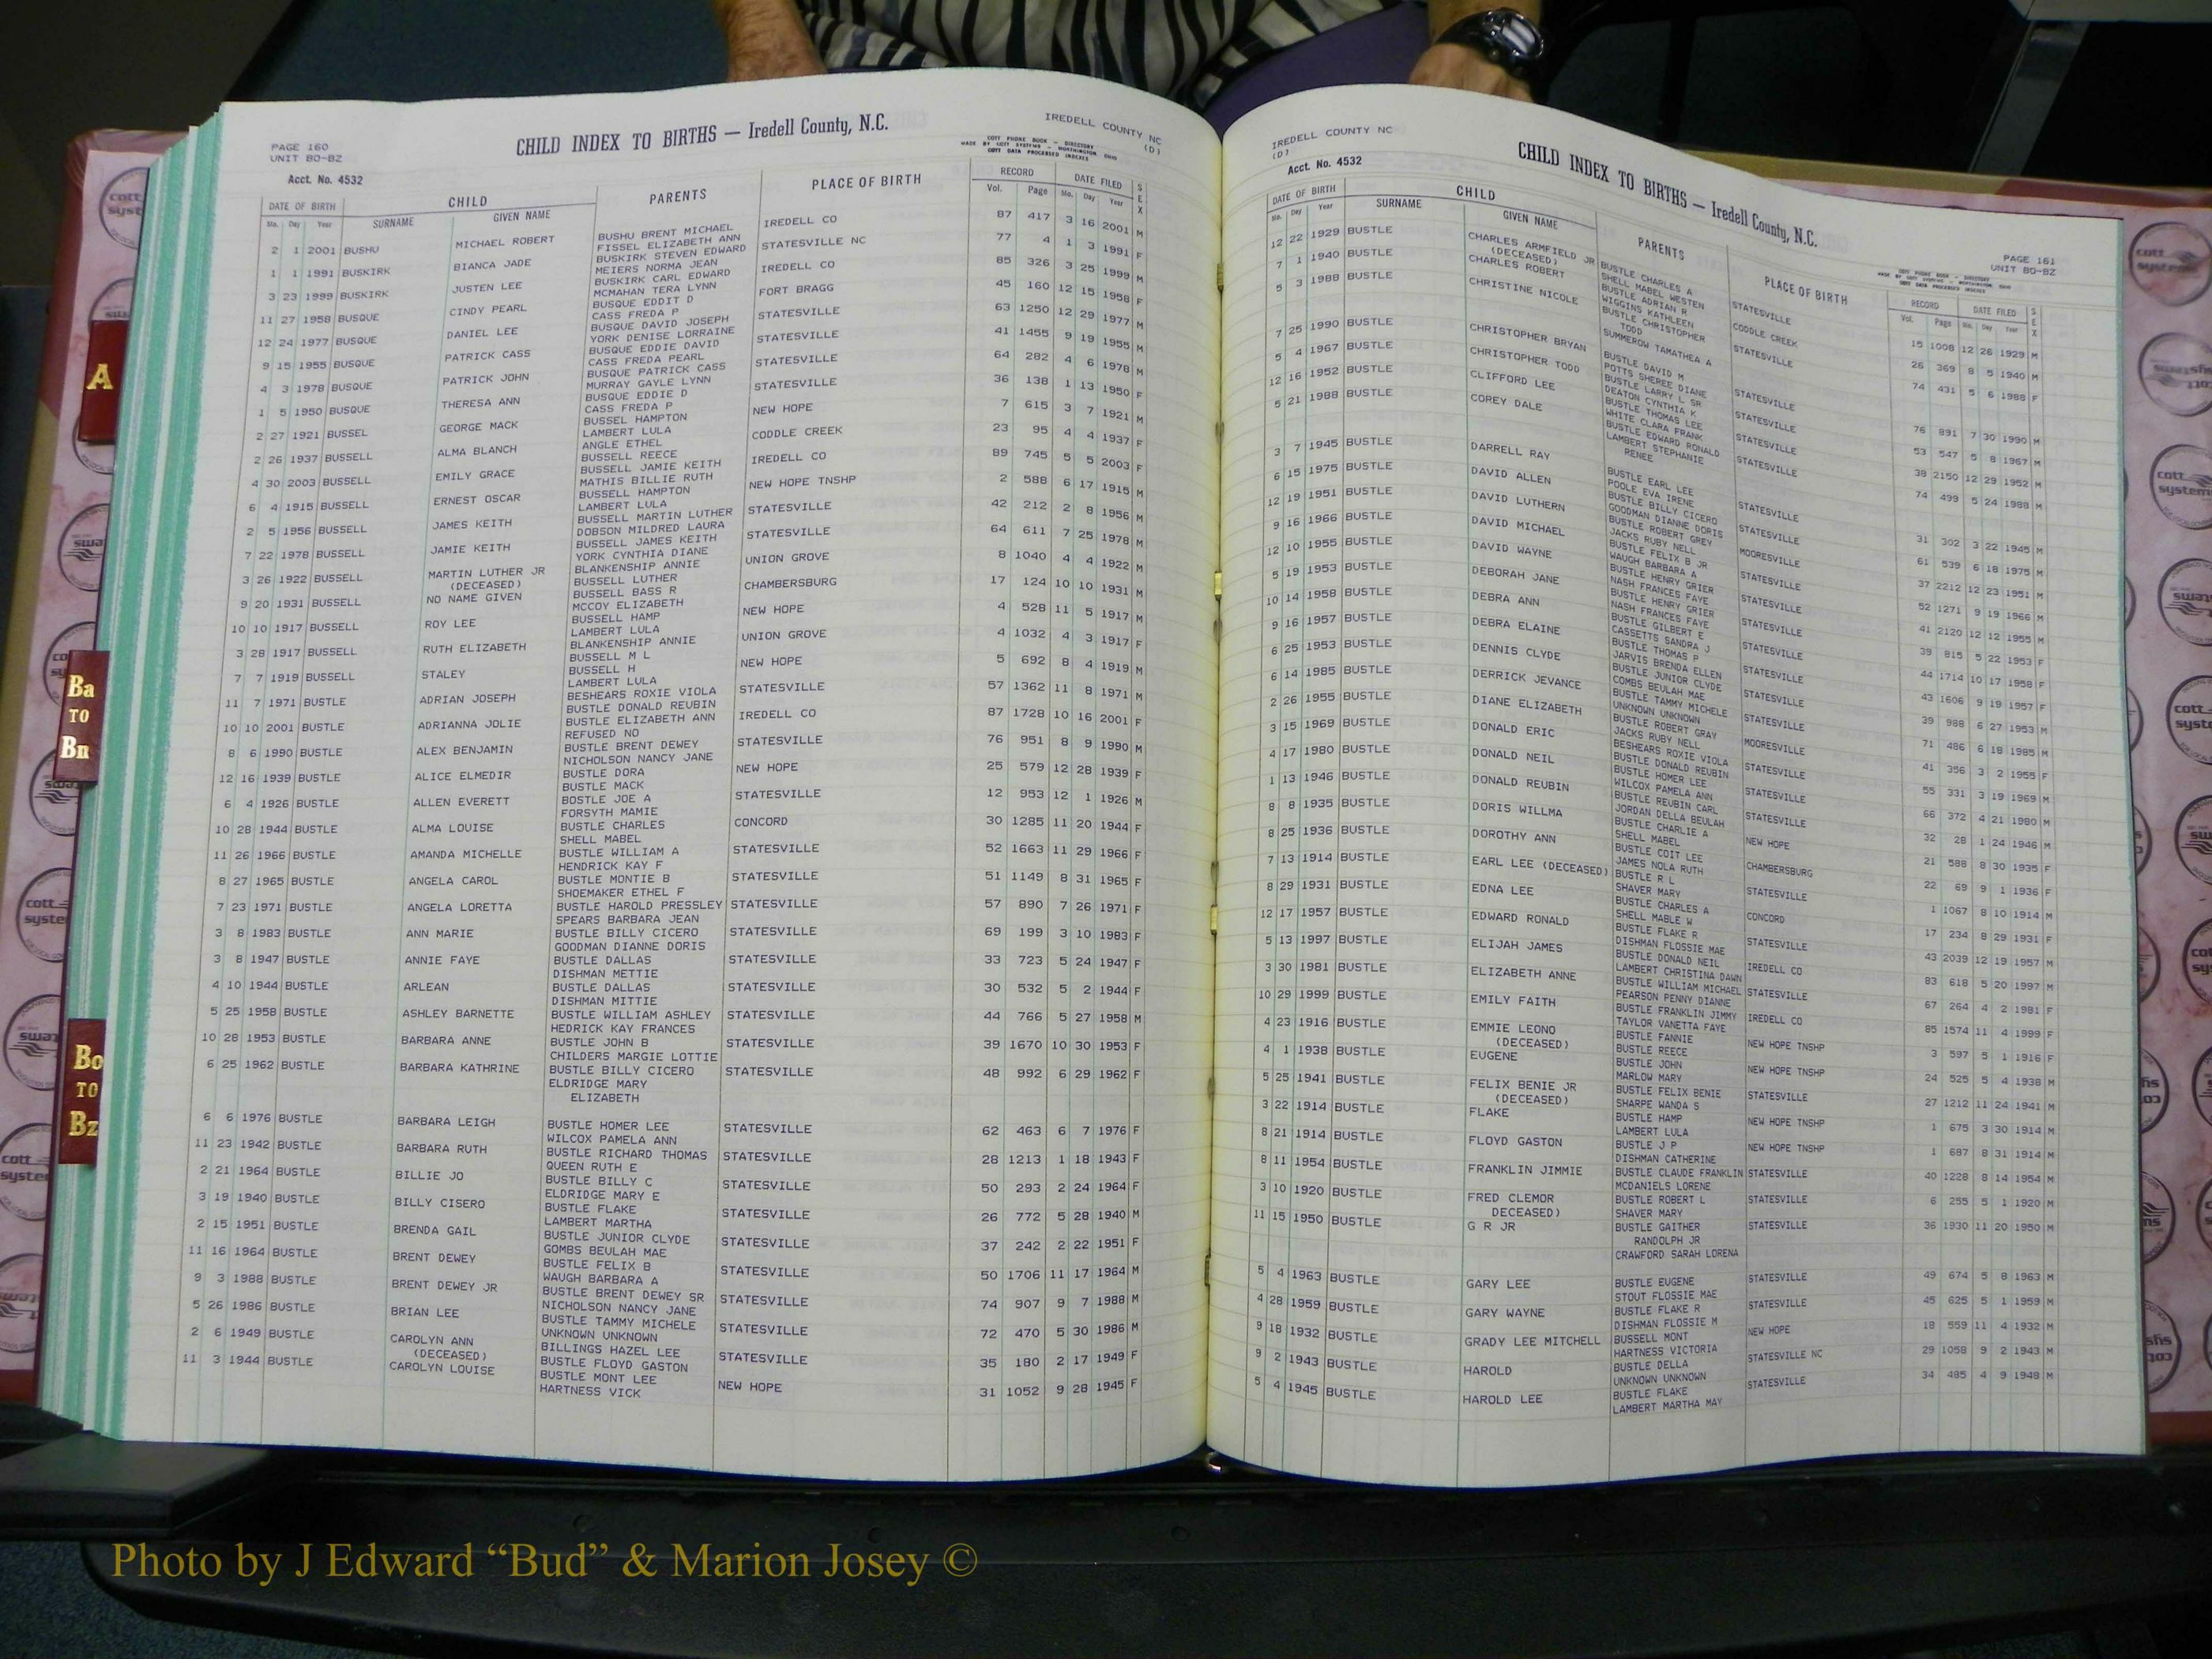 PAGE 160
UNIT BO-BZ
CHILD INDEX TO BIRTHS — Iredell County, N.C.
IREDELL COUNTY NC
(D)
COTT PHONE BOOK - DIRECTORY
MADE BY COTT SYSTEMS - WORTHINGTON OHIO
COTT DATA PROCESSED INDEXES
Acct. No. 4532
DATE OF BIRTH CHILD PARENTS PLACE OF BIRTH RECORD DATE FILED SEX
Mo. Day Year SURNAME GIVEN NAME Vol. Page Mo. Day Year
2 1 2001 BUSHU MICHAEL ROBERT BUSHU BRENT MICHAEL IREDELL CO 87 417 3 16 2001 M
FISSEL ELIZABETH ANN
1 1 1991 BUSKIRK BIANCA JADE BUSKIRK STEVEN EDWARD STATESVILLE NC 77 4 1 3 1991 F
MEIERS NORMA JEAN
3 23 1999 BUSKIRK JUSTEN LEE BUSKIRK CARL EDWARD IREDELL CO 85 326 3 25 1999 M
MCMAHAN TERA LYNN
11 27 1958 BUSQUE CINDY PEARL BUSQUE EDDIT D FORT BRAGG 45 160 12 15 1958 F
CASS FREDA P
12 24 1977 BUSQUE DANIEL LEE BUSQUE DAVID JOSEPH STATESVILLE 63 1250 12 29 1977 M
YORK DENISE LORRAINE
9 15 1955 BUSQUE PATRICK CASS BUSQUE EDDIE DAVID STATESVILLE 41 1455 9 19 1955 M
CASS FREDA PEARL
4 3 1978 BUSQUE PATRICK JOHN BUSQUE PATRICK CASS STATESVILLE 64 282 4 6 1978 M
MURRAY GAYLE LYNN
1 5 1950 BUSQUE THERESA ANN BUSQUE EDDIE D STATESVILLE 36 138 1 13 1950 F
CASS FREDA P
2 27 1921 BUSSEL GEORGE MACK BUSSEL HAMPTON NEW HOPE 7 615 3 7 1921 M
LAMBERT LULA
2 26 1937 BUSSELL ALMA BLANCH ANGLE ETHEL CODDLE CREEK 23 95 4 4 1937 F
BUSSELL REECE
4 30 2003 BUSSELL EMILY GRACE BUSSELL JAMIE KEITH IREDELL CO 89 745 5 5 2003 F
MATHIS BILLIE RUTH
6 4 1915 BUSSELL ERNEST OSCAR BUSSELL HAMPTON NEW HOPE TNSHP 2 588 6 17 1915 M
LAMBERT LULA
2 5 1956 BUSSELL JAMES KEITH BUSSELL MARTIN LUTHER STATESVILLE 42 212 2 8 1956 M
DOBSON MILDRED LAURA
7 22 1978 BUSSELL JAMIE KEITH BUSSELL JAMES KEITH STATESVILLE 64 611 7 25 1978 M
YORK CYNTHIA DIANE
3 26 1922 BUSSELL MARTIN LUTHER JR BLANKENSHIP ANNIE UNION GROVE 8 1040 4 4 1922 M
(DECEASED) BUSSELL LUTHER
9 20 1931 BUSSELL NO NAME GIVEN BUSSELL BASS R CHAMBERSBURG 17 124 10 10 1931 M
MCCOY ELIZABETH
10 10 1917 BUSSELL ROY LEE BUSSELL HAMP NEW HOPE 4 528 11 5 1917 M
LAMBERT LULA
3 28 1917 BUSSELL RUTH ELIZABETH BLANKENSHIP ANNIE UNION GROVE 4 1032 4 3 1917 F
BUSSELL M L
7 7 1919 BUSSELL STALEY BUSSELL H NEW HOPE 5 692 8 4 1919 M
LAMBERT LULA
11 7 1971 BUSTLE ADRIAN JOSEPH BESHEARS ROXIE VIOLA STATESVILLE 57 1362 11 8 1971 M
BUSTLE DONALD REUBIN
10 10 2001 BUSTLE ADRIANNA JOLIE BUSTLE ELIZABETH ANN IREDELL CO 87 1728 10 16 2001 F
REFUSED NO
8 6 1990 BUSTLE ALEX BENJAMIN BUSTLE BRENT DEWEY STATESVILLE 76 951 8 9 1990 M
NICHOLSON NANCY JANE
12 16 1939 BUSTLE ALICE ELMEDIR BUSTLE DORA NEW HOPE 25 579 12 28 1939 F
BUSTLE MACK
6 4 1926 BUSTLE ALLEN EVERETT BOSTLE JOE A STATESVILLE 12 953 12 1 1926 M
FORSYTH MAMIE
10 28 1944 BUSTLE ALMA LOUISE BUSTLE CHARLES CONCORD 30 1285 11 20 1944 F
SHELL MABEL
11 26 1966 BUSTLE AMANDA MICHELLE BUSTLE WILLIAM A STATESVILLE 52 1663 11 29 1966 F
HENDRICK KAY F
8 27 1965 BUSTLE ANGELA CAROL BUSTLE MONTIE B STATESVILLE 51 1149 8 31 1965 F
SHOEMAKER ETHEL F
7 23 1971 BUSTLE ANGELA LORETTA BUSTLE HAROLD PRESSLEY STATESVILLE 57 890 7 26 1971 F
SPEARS BARBARA JEAN
3 8 1983 BUSTLE ANN MARIE BUSTLE BILLY CICERO STATESVILLE 69 199 3 10 1983 F
GOODMAN DIANNE DORIS
3 8 1947 BUSTLE ANNIE FAYE BUSTLE DALLAS STATESVILLE 33 723 5 24 1947 F
DISHMAN METTIE
4 10 1944 BUSTLE ARLEAN BUSTLE DALLAS STATESVILLE 30 532 5 2 1944 F
DISHMAN MITTIE
5 25 1958 BUSTLE ASHLEY BARNETTE BUSTLE WILLIAM ASHLEY STATESVILLE 44 766 5 27 1958 M
HEDRICK KAY FRANCES
10 28 1953 BUSTLE BARBARA ANNE BUSTLE JOHN B STATESVILLE 39 1670 10 30 1953 F
CHILDERS MARGIE LOTTIE
6 25 1962 BUSTLE BARBARA KATHRINE BUSTLE BILLY CICERO STATESVILLE 48 992 6 29 1962 F
ELDRIDGE MARY
ELIZABETH
6 6 1976 BUSTLE BARBARA LEIGH BUSTLE HOMER LEE STATESVILLE 62 463 6 7 1976 F
WILCOX PAMELA ANN
11 23 1942 BUSTLE BARBARA RUTH BUSTLE RICHARD THOMAS STATESVILLE 28 1213 1 18 1943 F
QUEEN RUTH E
2 21 1964 BUSTLE BILLIE JO BUSTLE BILLY C STATESVILLE 50 293 2 24 1964 F
ELDRIDGE MARY E
3 19 1940 BUSTLE BILLY CISERO BUSTLE FLAKE STATESVILLE 26 772 5 28 1940 M
LAMBERT MARTHA
2 15 1951 BUSTLE BRENDA GAIL BUSTLE JUNIOR CLYDE STATESVILLE 37 242 2 22 1951 F
GOMBS BEULAH MAE
11 16 1964 BUSTLE BRENT DEWEY BUSTLE FELIX B STATESVILLE 50 1706 11 17 1964 M
WAUGH BARBARA A
9 3 1988 BUSTLE BRENT DEWEY JR BUSTLE BRENT DEWEY SR STATESVILLE 74 907 9 7 1988 M
NICHOLSON NANCY JANE
5 26 1986 BUSTLE BRIAN LEE BUSTLE TAMMY MICHELE STATESVILLE 72 470 5 30 1986 M
UNKNOWN UNKNOWN
2 6 1949 BUSTLE CAROLYN ANN BILLINGS HAZEL LEE STATESVILLE 35 180 2 17 1949 F
(DECEASED) BUSTLE FLOYD GASTON
11 3 1944 BUSTLE CAROLYN LOUISE BUSTLE MONT LEE NEW HOPE 31 1052 9 28 1945 F
HARTNESS VICK
IREDELL COUNTY NC
(D)
CHILD INDEX TO BIRTHS — Iredell County, N.C.
PAGE 161
UNIT BO-BZ
COTT PHONE BOOK - DIRECTORY
MADE BY COTT SYSTEMS - WORTHINGTON OHIO
COTT DATA PROCESSED INDEXES
Acct. No. 4532
DATE OF BIRTH CHILD PARENTS PLACE OF BIRTH RECORD DATE FILED SEX
Mo. Day Year SURNAME GIVEN NAME Vol. Page Mo. Day Year
12 22 1929 BUSTLE CHARLES ARMFIELD JR BUSTLE CHARLES A STATESVILLE 15 1008 12 26 1929 M
(DECEASED) SHELL MABEL WESTEN
7 1 1940 BUSTLE CHARLES ROBERT BUSTLE ADRIAN R CODDLE CREEK 26 369 8 5 1940 M
WIGGINS KATHLEEN
5 3 1988 BUSTLE CHRISTINE NICOLE BUSTLE CHRISTOPHER STATESVILLE 74 431 5 6 1988 F
TODD
SUMMEROW TAMATHEA A
7 25 1990 BUSTLE CHRISTOPHER BRYAN BUSTLE DAVID M STATESVILLE 76 891 7 30 1990 M
POTTS SHEREE DIANE
5 4 1967 BUSTLE CHRISTOPHER TODD BUSTLE LARRY L SR STATESVILLE 53 547 5 8 1967 M
DEATON CYNTHIA K
12 16 1952 BUSTLE CLIFFORD LEE BUSTLE THOMAS LEE STATESVILLE 38 2150 12 29 1952 M
WHITE CLARA FRANK
5 21 1988 BUSTLE COREY DALE BUSTLE EDWARD RONALD STATESVILLE 74 499 5 24 1988 M
LAMBERT STEPHANIE
RENEE
3 7 1945 BUSTLE DARRELL RAY BUSTLE EARL LEE STATESVILLE 31 302 3 22 1945 M
POOLE EVA IRENE
6 15 1975 BUSTLE DAVID ALLEN BUSTLE BILLY CICERO STATESVILLE 61 539 6 18 1975 M
GOODMAN DIANNE DORIS
12 19 1951 BUSTLE DAVID LUTHERN BUSTLE ROBERT GREY MOORESVILLE 37 2212 12 23 1951 M
JACKS RUBY NELL
9 16 1966 BUSTLE DAVID MICHAEL BUSTLE FELIX B JR STATESVILLE 52 1271 9 19 1966 M
WAUGH BARBARA A
12 10 1955 BUSTLE DAVID WAYNE BUSTLE HENRY GRIER STATESVILLE 41 2120 12 12 1955 M
NASH FRANCES FAYE
5 19 1953 BUSTLE DEBORAH JANE BUSTLE HENRY GRIER STATESVILLE 39 815 5 22 1953 F
NASH FRANCES FAYE
10 14 1958 BUSTLE DEBRA ANN BUSTLE GILBERT E STATESVILLE 44 1714 10 17 1958 F
CASSETTS SANDRA J
9 16 1957 BUSTLE DEBRA ELAINE BUSTLE THOMAS P STATESVILLE 43 1606 9 19 1957 F
JARVIS BRENDA ELLEN
6 25 1953 BUSTLE DENNIS CLYDE BUSTLE JUNIOR CLYDE STATESVILLE 39 988 6 27 1953 M
COMBS BEULAH MAE
6 14 1985 BUSTLE DERRICK JEVANCE BUSTLE TAMMY MICHELE STATESVILLE 71 486 6 18 1985 M
UNKNOWN UNKNOWN
2 26 1955 BUSTLE DIANE ELIZABETH BUSTLE ROBERT GRAY MOORESVILLE 41 356 3 2 1955 F
JACKS RUBY NELL
3 15 1969 BUSTLE DONALD ERIC BESHEARS ROXIE VIOLA STATESVILLE 55 331 3 19 1969 M
BUSTLE DONALD REUBIN
4 17 1980 BUSTLE DONALD NEIL BUSTLE HOMER LEE STATESVILLE 66 372 4 21 1980 M
WILCOX PAMELA ANN
1 13 1946 BUSTLE DONALD REUBIN BUSTLE REUBIN CARL STATESVILLE 32 28 1 24 1946 M
JORDAN DELLA BEULAH
8 8 1935 BUSTLE DORIS WILLMA BUSTLE CHARLIE A NEW HOPE 21 588 8 30 1935 F
SHELL MABEL
8 25 1936 BUSTLE DOROTHY ANN BUSTLE COIT LEE CHAMBERSBURG 22 69 9 1 1936 F
JAMES NOLA RUTH
7 13 1914 BUSTLE EARL LEE (DECEASED) BUSTLE R L STATESVILLE 1 1067 8 10 1914 M
SHAVER MARY
8 29 1931 BUSTLE EDNA LEE BUSTLE CHARLES A CONCORD 17 234 8 29 1931 F
SHELL MABLE W
12 17 1957 BUSTLE EDWARD RONALD BUSTLE FLAKE R STATESVILLE 43 2039 12 19 1957 M
DISHMAN FLOSSIE MAE
5 13 1997 BUSTLE ELIJAH JAMES BUSTLE DONALD NEIL IREDELL CO 83 618 5 20 1997 M
LAMBERT CHRISTINA DAWN
3 30 1981 BUSTLE ELIZABETH ANNE BUSTLE WILLIAM MICHAEL STATESVILLE 67 264 4 2 1981 F
PEARSON PENNY DIANNE
10 29 1999 BUSTLE EMILY FAITH BUSTLE FRANKLIN JIMMY IREDELL CO 85 1574 11 4 1999 F
TAYLOR VANETTA FAYE
4 23 1916 BUSTLE EMMIE LEONO BUSTLE FANNIE NEW HOPE TNSHP 3 597 5 1 1916 F
(DECEASED) BUSTLE REECE
4 1 1938 BUSTLE EUGENE BUSTLE JOHN NEW HOPE TNSHP 24 525 5 4 1938 M
MARLOW MARY
5 25 1941 BUSTLE FELIX BENIE JR BUSTLE FELIX BENIE STATESVILLE 27 1212 11 24 1941 M
(DECEASED) SHARPE WANDA S
3 22 1914 BUSTLE FLAKE BUSTLE HAMP NEW HOPE TNSHP 1 675 3 30 1914 M
LAMBERT LULA
8 21 1914 BUSTLE FLOYD GASTON BUSTLE J P NEW HOPE TNSHP 1 687 8 31 1914 M
DISHMAN CATHERINE
8 11 1954 BUSTLE FRANKLIN JIMMIE BUSTLE CLAUDE FRANKLIN STATESVILLE 40 1228 8 14 1954 M
MCDANIELS LORENE
3 10 1920 BUSTLE FRED CLEMOR BUSTLE ROBERT L STATESVILLE 6 255 5 1 1920 M
DECEASED) SHAVER MARY
11 15 1950 BUSTLE G R JR BUSTLE GAITHER STATESVILLE 36 1930 11 20 1950 M
RANDOLPH JR
CRAWFORD SARAH LORENA
5 4 1963 BUSTLE GARY LEE BUSTLE EUGENE STATESVILLE 49 674 5 8 1963 M
STOUT FLOSSIE MAE
4 28 1959 BUSTLE GARY WAYNE BUSTLE FLAKE R STATESVILLE 45 625 5 1 1959 M
DISHMAN FLOSSIE M
9 18 1932 BUSTLE GRADY LEE MITCHELL BUSSELL MONT NEW HOPE 18 559 11 4 1932 M
HARTNESS VICTORIA
9 2 1943 BUSTLE HAROLD BUSTLE DELLA STATESVILLE NC 29 1058 9 2 1943 M
UNKNOWN UNKNOWN
5 4 1945 BUSTLE HAROLD LEE BUSTLE FLAKE STATESVILLE 34 485 4 9 1948 M
LAMBERT MARTHA MAY
A
Ba
TO
Bn
Bo
TO
Bz
Photo by J Edward “Bud” & Marion Josey ©